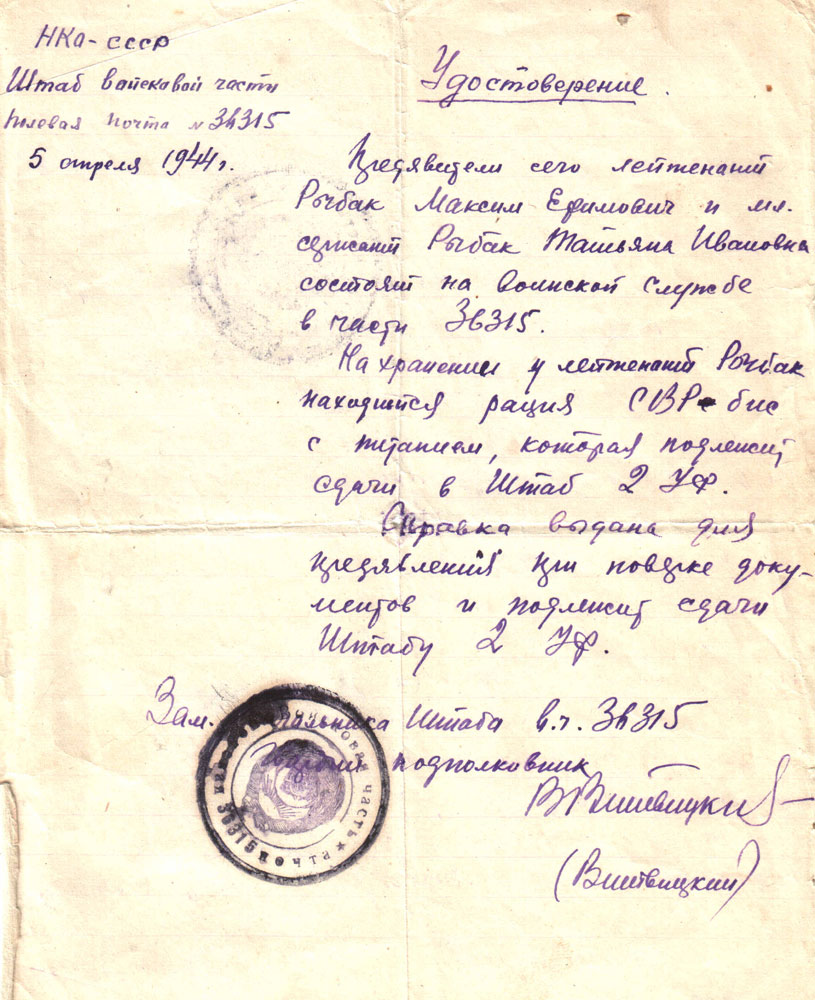 НКО-СССР
Штаб войсковой части
Полевая почта № 36315
5 апреля 1944 г.
Удостоверение.
Предявители сего лейтенант
Рыбак Максим Ефимович и мл.
сержант Рыбак Татьяна Ивановна
состоят на воинской службе
в части 36315.
На хранении у лейтенант Рыбак
находится рация СВР-бис
с питанием, которая подлежит
сдачи в Штаб 2 УФ.
Справка выдана для
предявления при поверке доку-
ментов и подлежит сдачи
Штабу 2 УФ.
Зам. Начальника Штаба в.ч. 36315
Гвардии подполковник
(Витвицкий)
войсковая часть ★
36315 почта ★